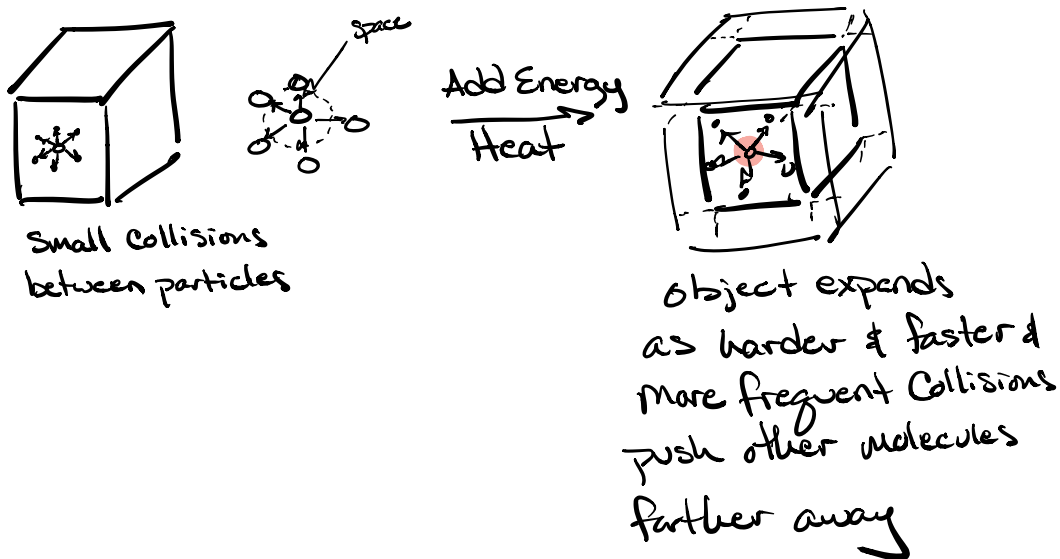 space
Add Energy
Heat
Small Collisions
between particles
object expands
as harder & faster &
more frequent Collisions
push other molecules
farther away